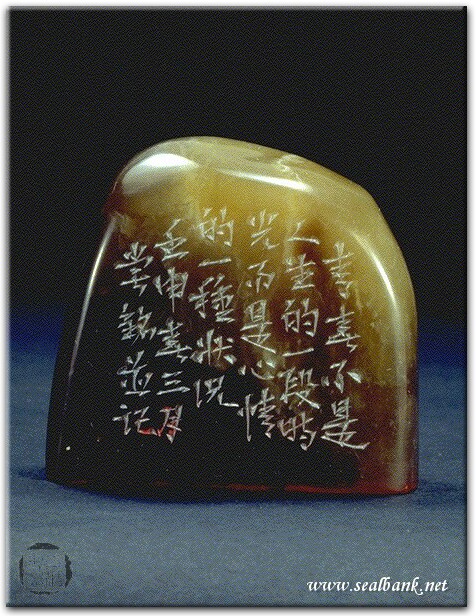 青春不是
人生的一段時
光而是心情
的一種狀況
壬申春三月
銘並记
www.sealbank.net